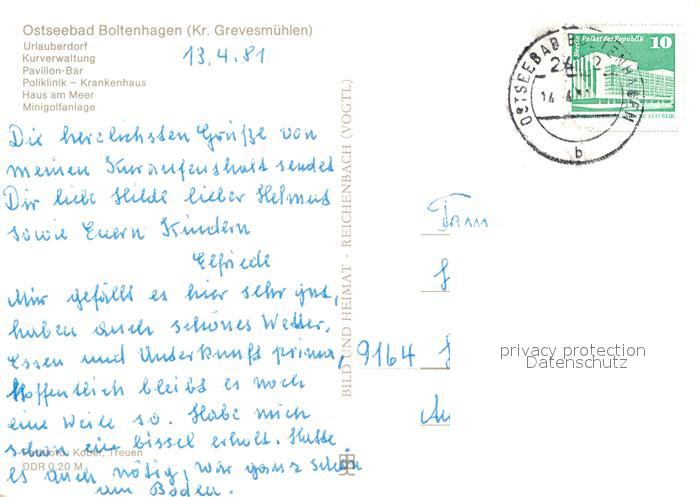 Ostseebad Boltenhagen (Kr. Grevesmühlen)
Urlauberdorf
Kurverwaltung
Pavillon-Bar
Poliklinik – Krankenhaus
Haus am Meer
Minigolfanlage
13.4.81
Die herzlichsten Grüße von
meinen Kuraufenthalt sendet
Dir liebe Hilde lieber Helmut
sowie Euern Kindern
Elfriede
Mir gefällt es hier sehr gut,
haben auch schönes Wetter.
Essen und Unterkunft prima,
Hoffentlich bleibt es noch
eine Weile so. Habe mich
schon ein bissel erholt. Hatte
es auch nötig, war ganz schön
am Boden.
Kober, Treuen
DDR 0,20 M
BILD UND HEIMAT · REICHENBACH (VOGTL)
Berlin Palast der Republik 10
OSTSEEBAD BOLTENHAGEN
14.4.
b
Fam
9164
privacy protection
Datenschutz